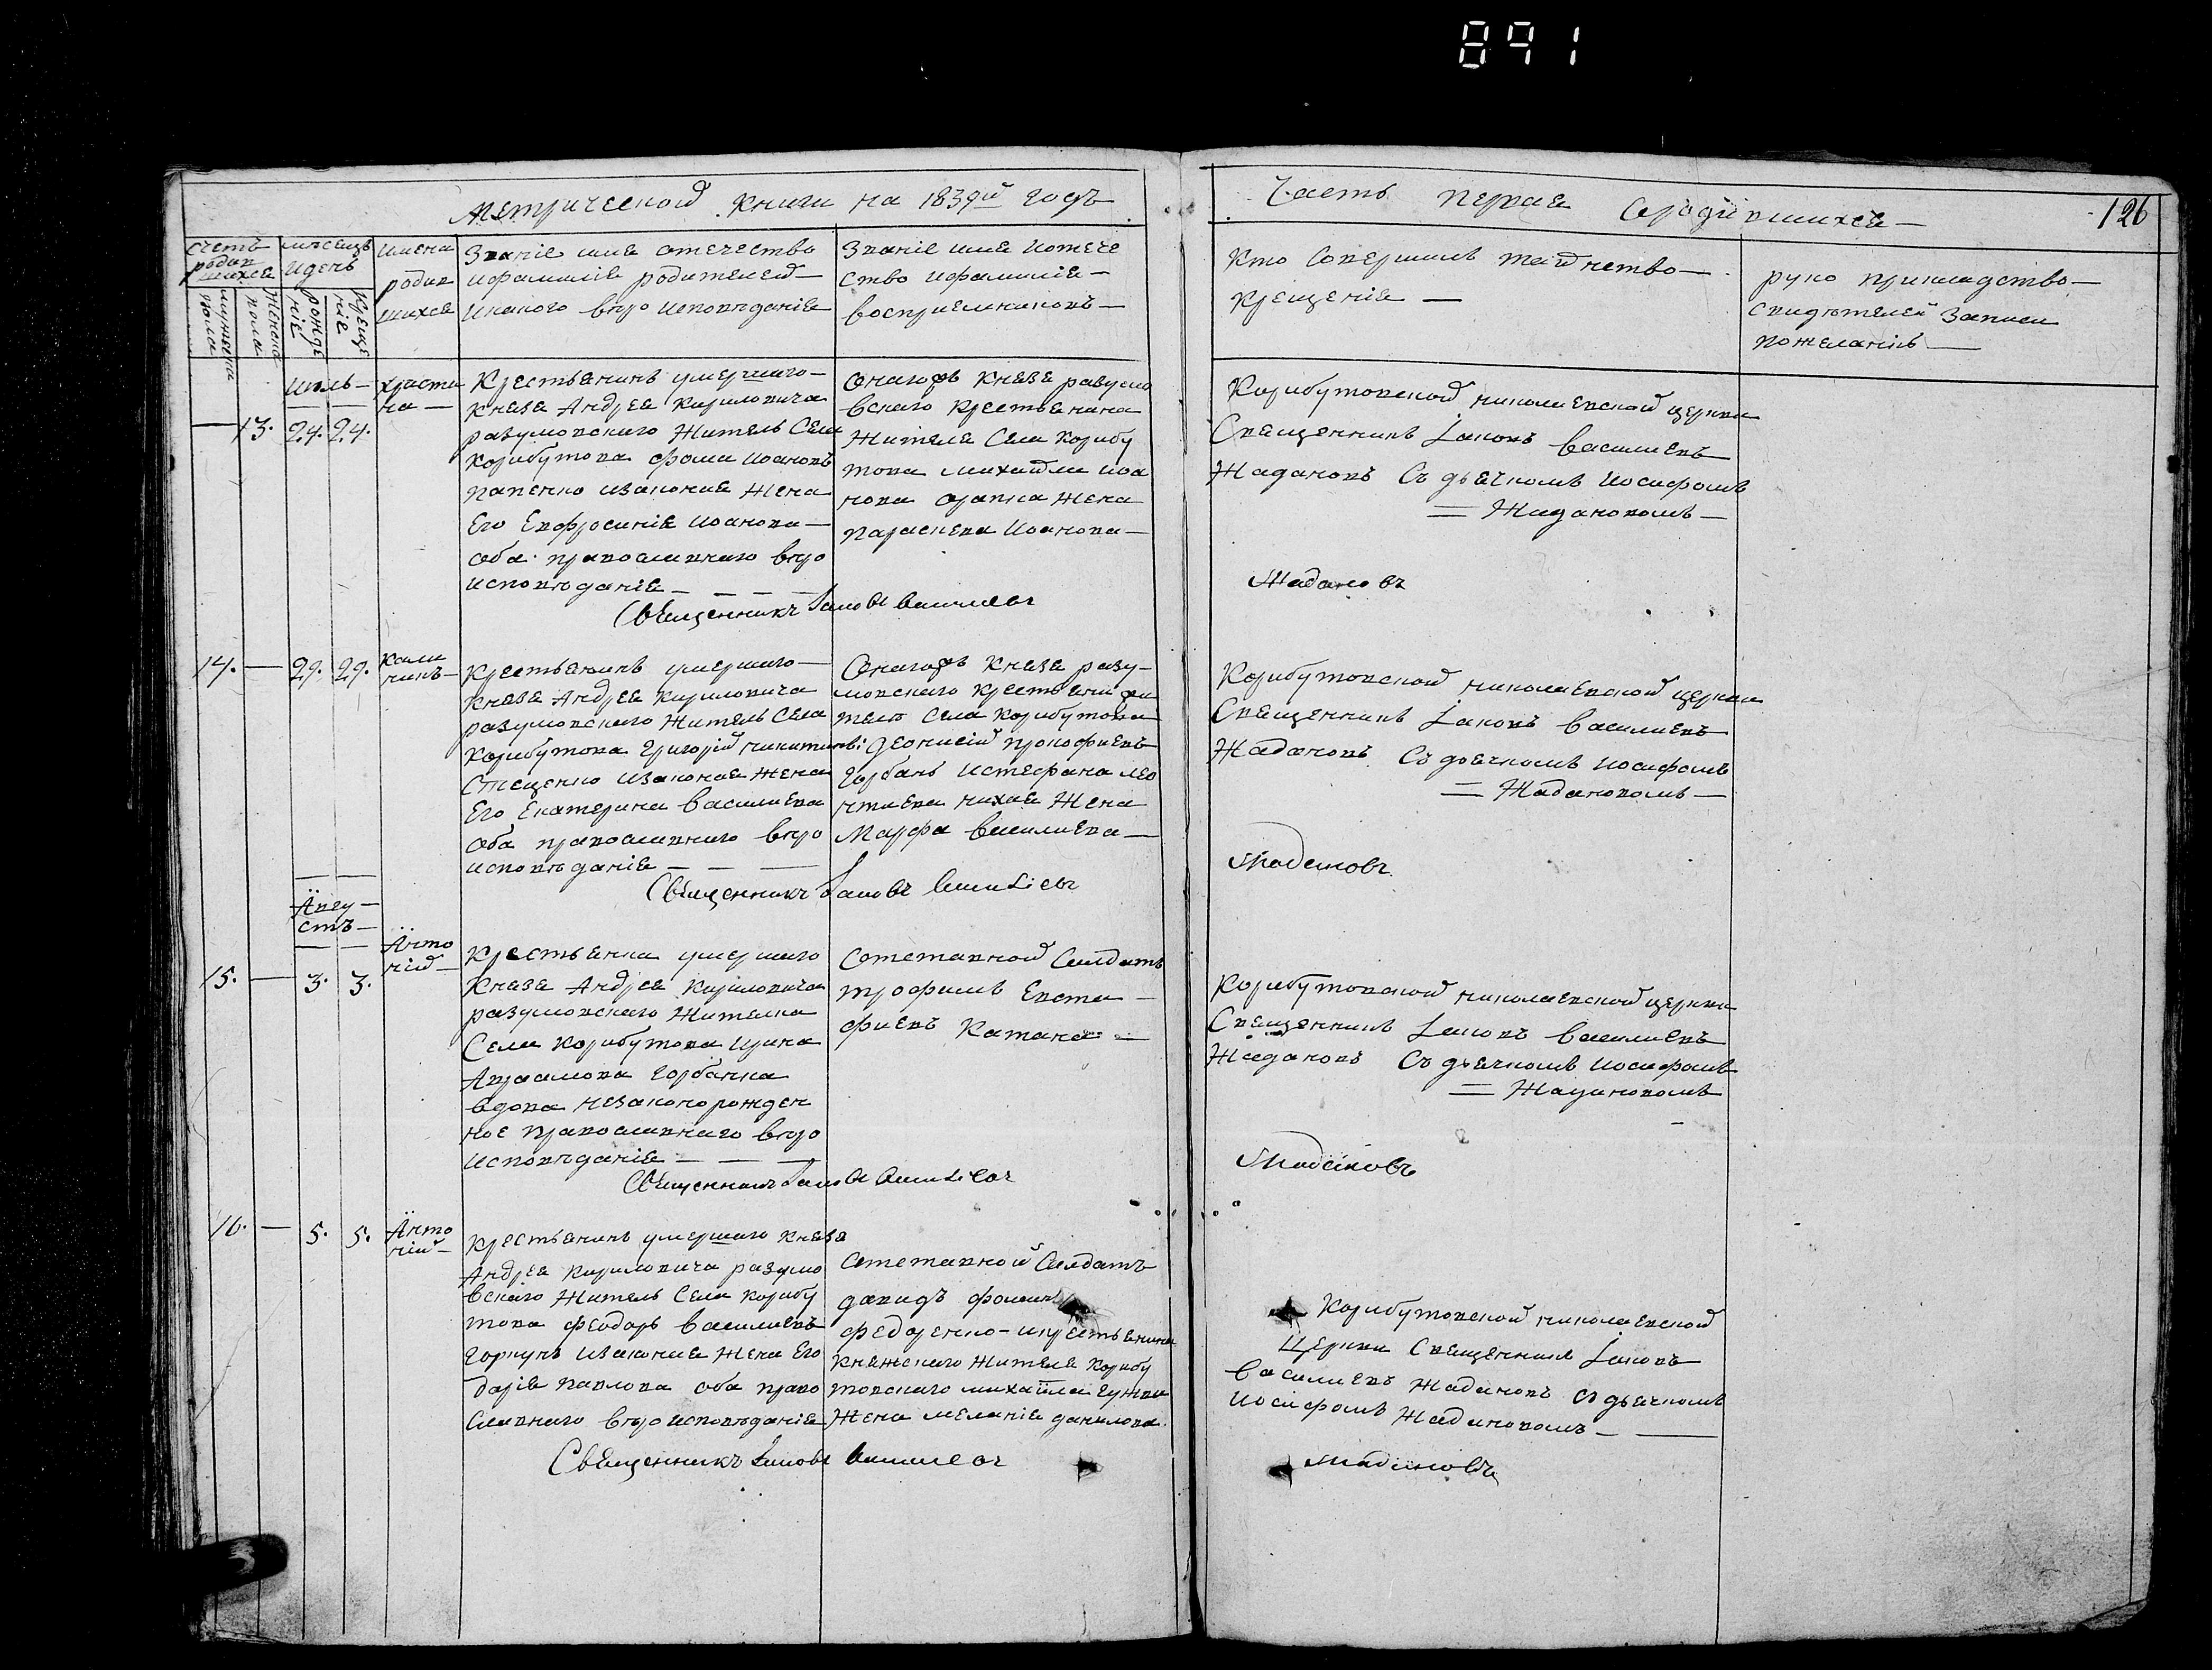 891
Метрической книги на 1839й годъ
Часть первая Ородившихся
126
Счетъ родившихся
мужеска пола
женска пола
мѣсецъ и день
рожденіе
крещеніе
имена родившихся
Званіе имя отечество
ифамиліе родителей
икакого вѣроисповѣданіе
Званіе имя иотече
ство ифамиліе
восприемниковъ
Кто Совершилъ таинство
крещеніе
руко прикладство
Свидѣтелей Записи
пожеланію
июль
христи
на
13. 24. 24.
Крестьянинъ умершаго
князя Андрея Кириловича
разумовскаго Житель Села
Корибутова фома Иоановъ
изаконная Жена
Его Евфросинія Иоанова
оба православнаго вѣро
исповѣданіе
Онагожъ Князя разумо
вскаго Крестьянина
Жителя Села Корибу
това михайла иоа
нова Жена
параскева Иоанова
Корибутовской николаевской церкви
Священникъ Іаковъ василиевъ
Жадановъ Съ дьячкомъ Иосифомъ
Жадановомъ
Священникъ Іаковъ василиевъ
Жадановъ
14. 29. 29.
Кали
никъ
Крестьянинъ умершаго
Князя Андрея Кириловича
разумовскаго Житель Села
Корибутова григорій никитинъ
Стеценко изаконая Жена
Его Екатерина василиева
Оба православнаго вѣро
исповѣданіе
Онагожъ Князя разу
мовскаго крестьяни жи
тели Села Корибутова
Деонисій прокофиевъ
горбань истефана лео
нтиева Жена
Марфа василиева
Корибутовской николаевской церкви
Священникъ Іаковъ василиевъ
Жадановъ Съ дьячкомъ Иосифомъ
Жадановомъ
Священникъ Іаковъ василиевъ
Жадановъ
Авгу
стъ
15. 3. 3.
Анто
ній
Крестьянка умершаго
Князя Андрея Кириловича
разумовскаго Жителка
Села Корибутова Ирина
Авраамова горбанка
вдова незаконорожден
ное православнаго вѣро
исповѣданіе
Сотставной Салдатъ
трофимъ Евста
фиевъ Катана
Корибутовской николаевской церкви
Священникъ Іаковъ василиевъ
Жадановъ Съ дьячкомъ Иосифомъ
Жадановомъ
Священникъ Іаковъ василиевъ
Жадановъ
16. 5. 5.
Анто
ній
Крестьянинъ умершаго князя
Андрея Кириловича разумо
вскаго Житель Села Корибу
това феодоръ василиевъ
изаконная Жена Его
Дарія павлова оба право
славнаго вѣроисповѣданіе
Сотставной Салдатъ
давидъ фомин
федоренко икрестьянина
княжескаго Жителя Корибу
товскаго михайла
Жена меланія данилова.
Корибутовской николаевской
Церкви Священникъ Іаковъ
василиевъ Жадановъ Съ дьячкомъ
Иосифомъ Жадановомъ
Священникъ Іаковъ василиевъ
Жадановъ